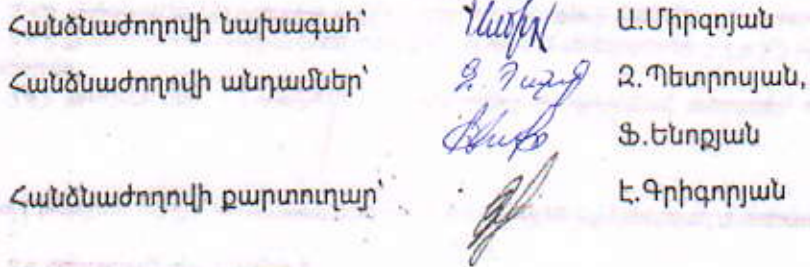 Հանձնաժողովի նախագահ՝ Ա.Միրզոյան
Հանձնաժողովի անդամներ՝ Զ.Պետրոսյան,
Ֆ.Ենոքյան
Հանձնաժողովի քարտուղար՝ Է.Գրիգորյան